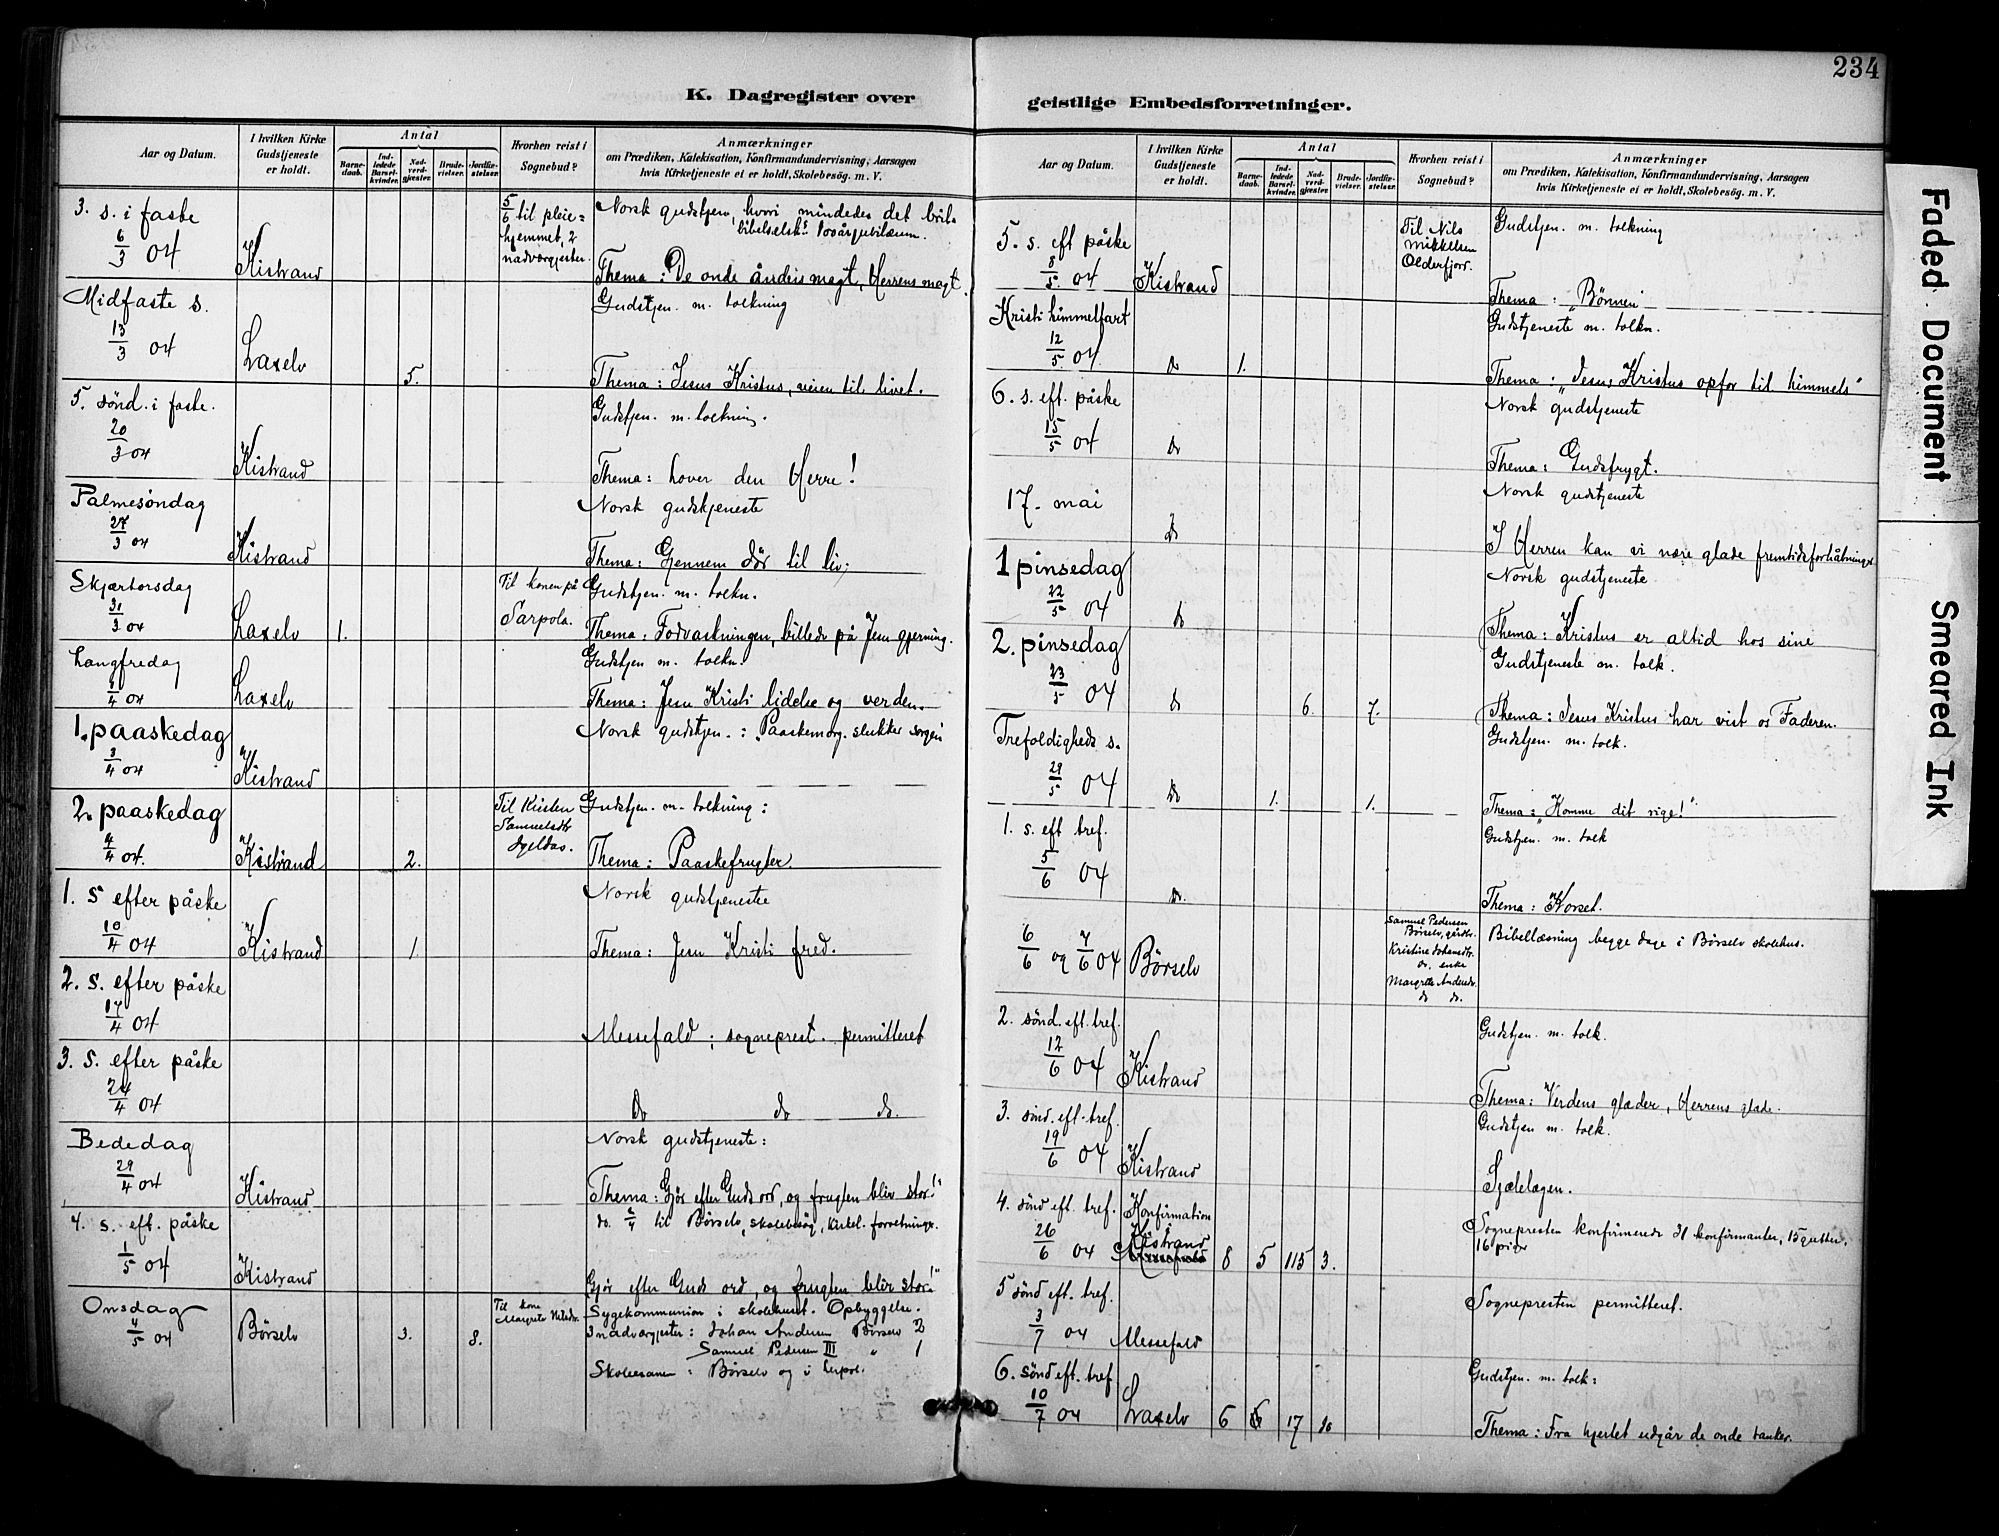 234
K. Dagregister over
Aar og Datum.
I hvilken Kirke Gudstjeneste er holdt.
Antal
Barnedaab.
Indledede Barselkvinder.
Nadverdgjester.
Brudevielser.
Jordfæstelser.
Hvorhen reist i Sognebud?
Anmærkninger
om Prædiken, Katekisation, Konfirmandundervisning, Aarsagen
hvis Kirketjeneste ei er holdt, Skolebesøg. m. V.
3. s. i faste
6/3 04
Kistrand
5/6 til pleie=
hjemmet, 2
nadvergjester.
Norsk gudstjen, hvori mindedes det brit.
bibelselsk. 100årsjubilæum.
Thema: De onde ånders magt, Herrens magt.
Midfaste s.
13/3 04
Laxelv
5.
Gudstjen. m. tolkning
Thema: Jesus Kristus, veien til livet.
5. sønd. i faste.
20/3 04
Kistrand
Gudstjen. m. tolkning.
Thema: lover den Herre!
Palmesøndag
27/3 04
Kistrand
Norsk gudstjeneste
Thema: Gjennem død til liv.
Skjærtorsdag
31/3 04
Laxelv
1.
Til konen på
Sarpola.
Gudstjen. m. tolkn.
Thema: Fodvaskningen, billede på Jesu gjerning.
Langfredag
1/4 04
Laxelv
Gudstjen m. tolkn.
Thema: Jesu Kristi lidelse og verden.
1. paaskedag
3/4 04
Kistrand
Norsk gudstjen.: "Paaskemorg. slukker sorgen
2. paaskedag
4/4 04.
Kistrand
2.
Til Kirsten
Samuelsdtr
Gudstjen. m. tolkning:
Thema: Paaskefrugter.
1. s efter påske
10/4 04
Kistrand
1.
Norsk gudstjeneste
Thema: Jesu Kristi fred.
2. s. efter påske
17/4 04
Messefald; sogneprest. permitteret
3. s. efter påske
24/4 04
Do do do.
Bededag
29/4 04
Kistrand
Norsk gudstjeneste:
Thema: Gjør efter Guds ord, og frugten blir stor!"
4. s. eft. påske
1/5 04
Kistrand
til Børselv, skolebesøg, kirkel. forretninger.
Gjør efter Guds ord, og frugten blir stor!"
Onsdag
4/5 04
Børselv
3.
8.
Til kone
Margrete Nilsdtr.
Sygekommunion i skolehuset. Opbyggelse.
3 nadvergjester: Johan Andersen Børselv 2
Samuel Pedersen III " 1
Skoleexamen: Børselv og i Leipok.
geistlige Embedsforretninger.
Aar og Datum.
I hvilken Kirke Gudstjeneste er holdt.
Antal
Barnedaab.
Indledede Barselkvinder.
Nadverdgjester.
Brudevielser.
Jordfæstelser.
Hvorhen reist i Sognebud?
Anmærkninger
om Prædiken, Katekisation, Konfirmandundervisning, Aarsagen
hvis Kirketjeneste ei er holdt, Skolebesøg. m. V.
5. s. eft påske
8/5 04
Kistrand
Til Nils
Mikkelsen
Olderfjord.
Gudstjen. m. tolkning
Thema: "Bønnen"
Kristi himmelfart
12/5 04
do
1.
Gudstjeneste m. tolkn.
Thema: "Jesus Kristus opfor til himmels"
6. s. eft. påske
15/5 04
do
Norsk gudstjeneste
Thema: Gudsfrygt.
17. mai
do
Norsk gudstjeneste
I Herren kan vi nære glade fremtidsforhåbninger
1 pinsedag
22/5 04
do
Norsk gudstjeneste
Thema: Kristus er altid hos sine
2. pinsedag
23/5 04
do
6.
7.
Gudstjeneste m. tolk.
Thema: Jesus Kristus har vist os Faderen.
Trefoldigheds s.
29/5 04
do
1.
1.
Gudstjen. m. tolk.
Thema: "Komme dit rige!"
1. s. eft tref.
5/6 04
do.
Gudstjen. m. tolk
Thema: Korset.
6/6 og 7/6 04
Børselv
Samuel Pedersen
Børselv, gårdbr.
Kristine Johansdtr.
do, enke
Margrete Andersdr.
do do.
Bibellæsning begge dage i Børselv skolehus.
2. sønd. eft. tref.
12/6 04
Kistrand
Gudstjen. m. tolk.
Thema: Verdens glæder, Herrens glæde.
3. sønd. eft. tref.
19/6 04
Kistrand
Gudstjen m. tolk.
Sjælelægen.
4. sønd eft. tref.
26/6 04
Konfirmation
i
Kistrand
Messefald
8
5
115
3.
Sognepresten konfirmerede 31 konfirmanter, 15 gutter,
16 piger
5 sønd eft. tref.
3/7 04
Messefald
Sognepresten permitteret.
6. sønd eft. tref
10/7 04
Laxelv
6
6
17
Gudstjen. m. tolk:
Thema: Fra hjertet udgår de onde tanker.
Faded Document
Smeared Ink